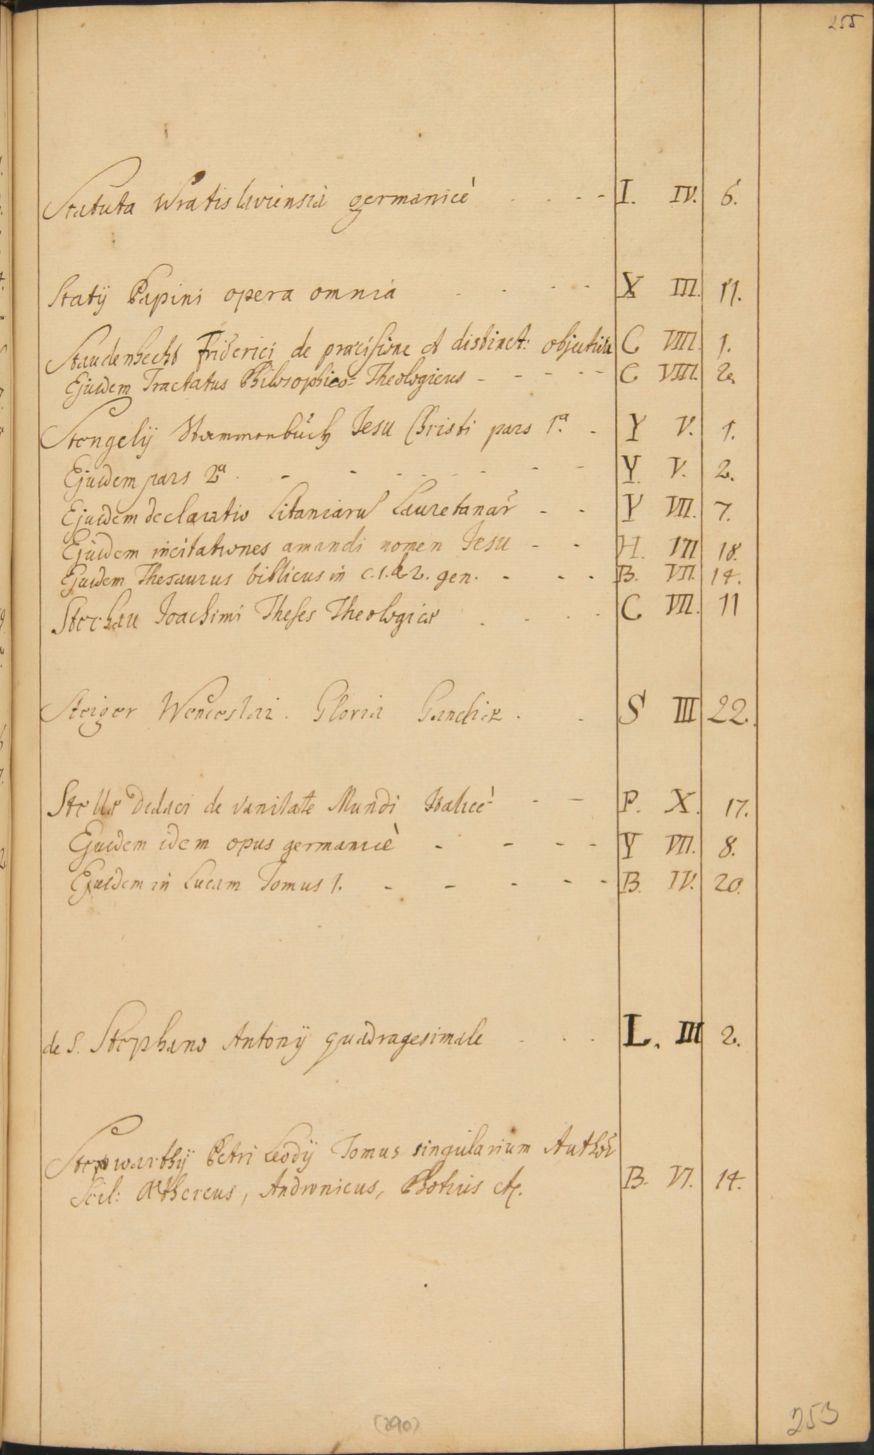 255
Statuta Wratislaviensia germanicè - - - - I. IV. 6.
Statij Papini opera omnia - - - - X III. 11.
Staudenhecht Friderici de præcisione et distinct: objectiva C VIII. 1.
Ejusdem Tractatus Philosophico-Theologicus - - - - - C VIII. 2.
Stengelij Stammenbuch Jesu Christi pars 1.a - Y V. 1.
Ejusdem pars 2a - - - - - - - Y. V. 2.
Ejusdem declaratio Litaniaru Lauretanar - - Y VII. 7.
Ejusdem incitationes amandi nomen Jesu - - H. III 18.
Ejusdem Thesaurus biblicus in c. 1. & 2. gen. - - - B. VII. 14.
Joachimi Theses Theologicæ - - - - C VII. 11
Steiger Wenceslai. Gloria - - S III 22.
Stellæ Didaci de vanitate Mundi Italicè - - P. X. 17.
Ejusdem idem opus germanicè - - - - Y VII. 8.
Ejusdem in Lucam Tomus 1. - - - - - B. IV. 20.
de S. Stephano Antonij quadragesimale - - - L. III 2.
Stewarthij Petri Leodij Tomus singularium Author
Scil: Æthereus, Andronicus, Photius etc. B. VI. 14.
(290)
253